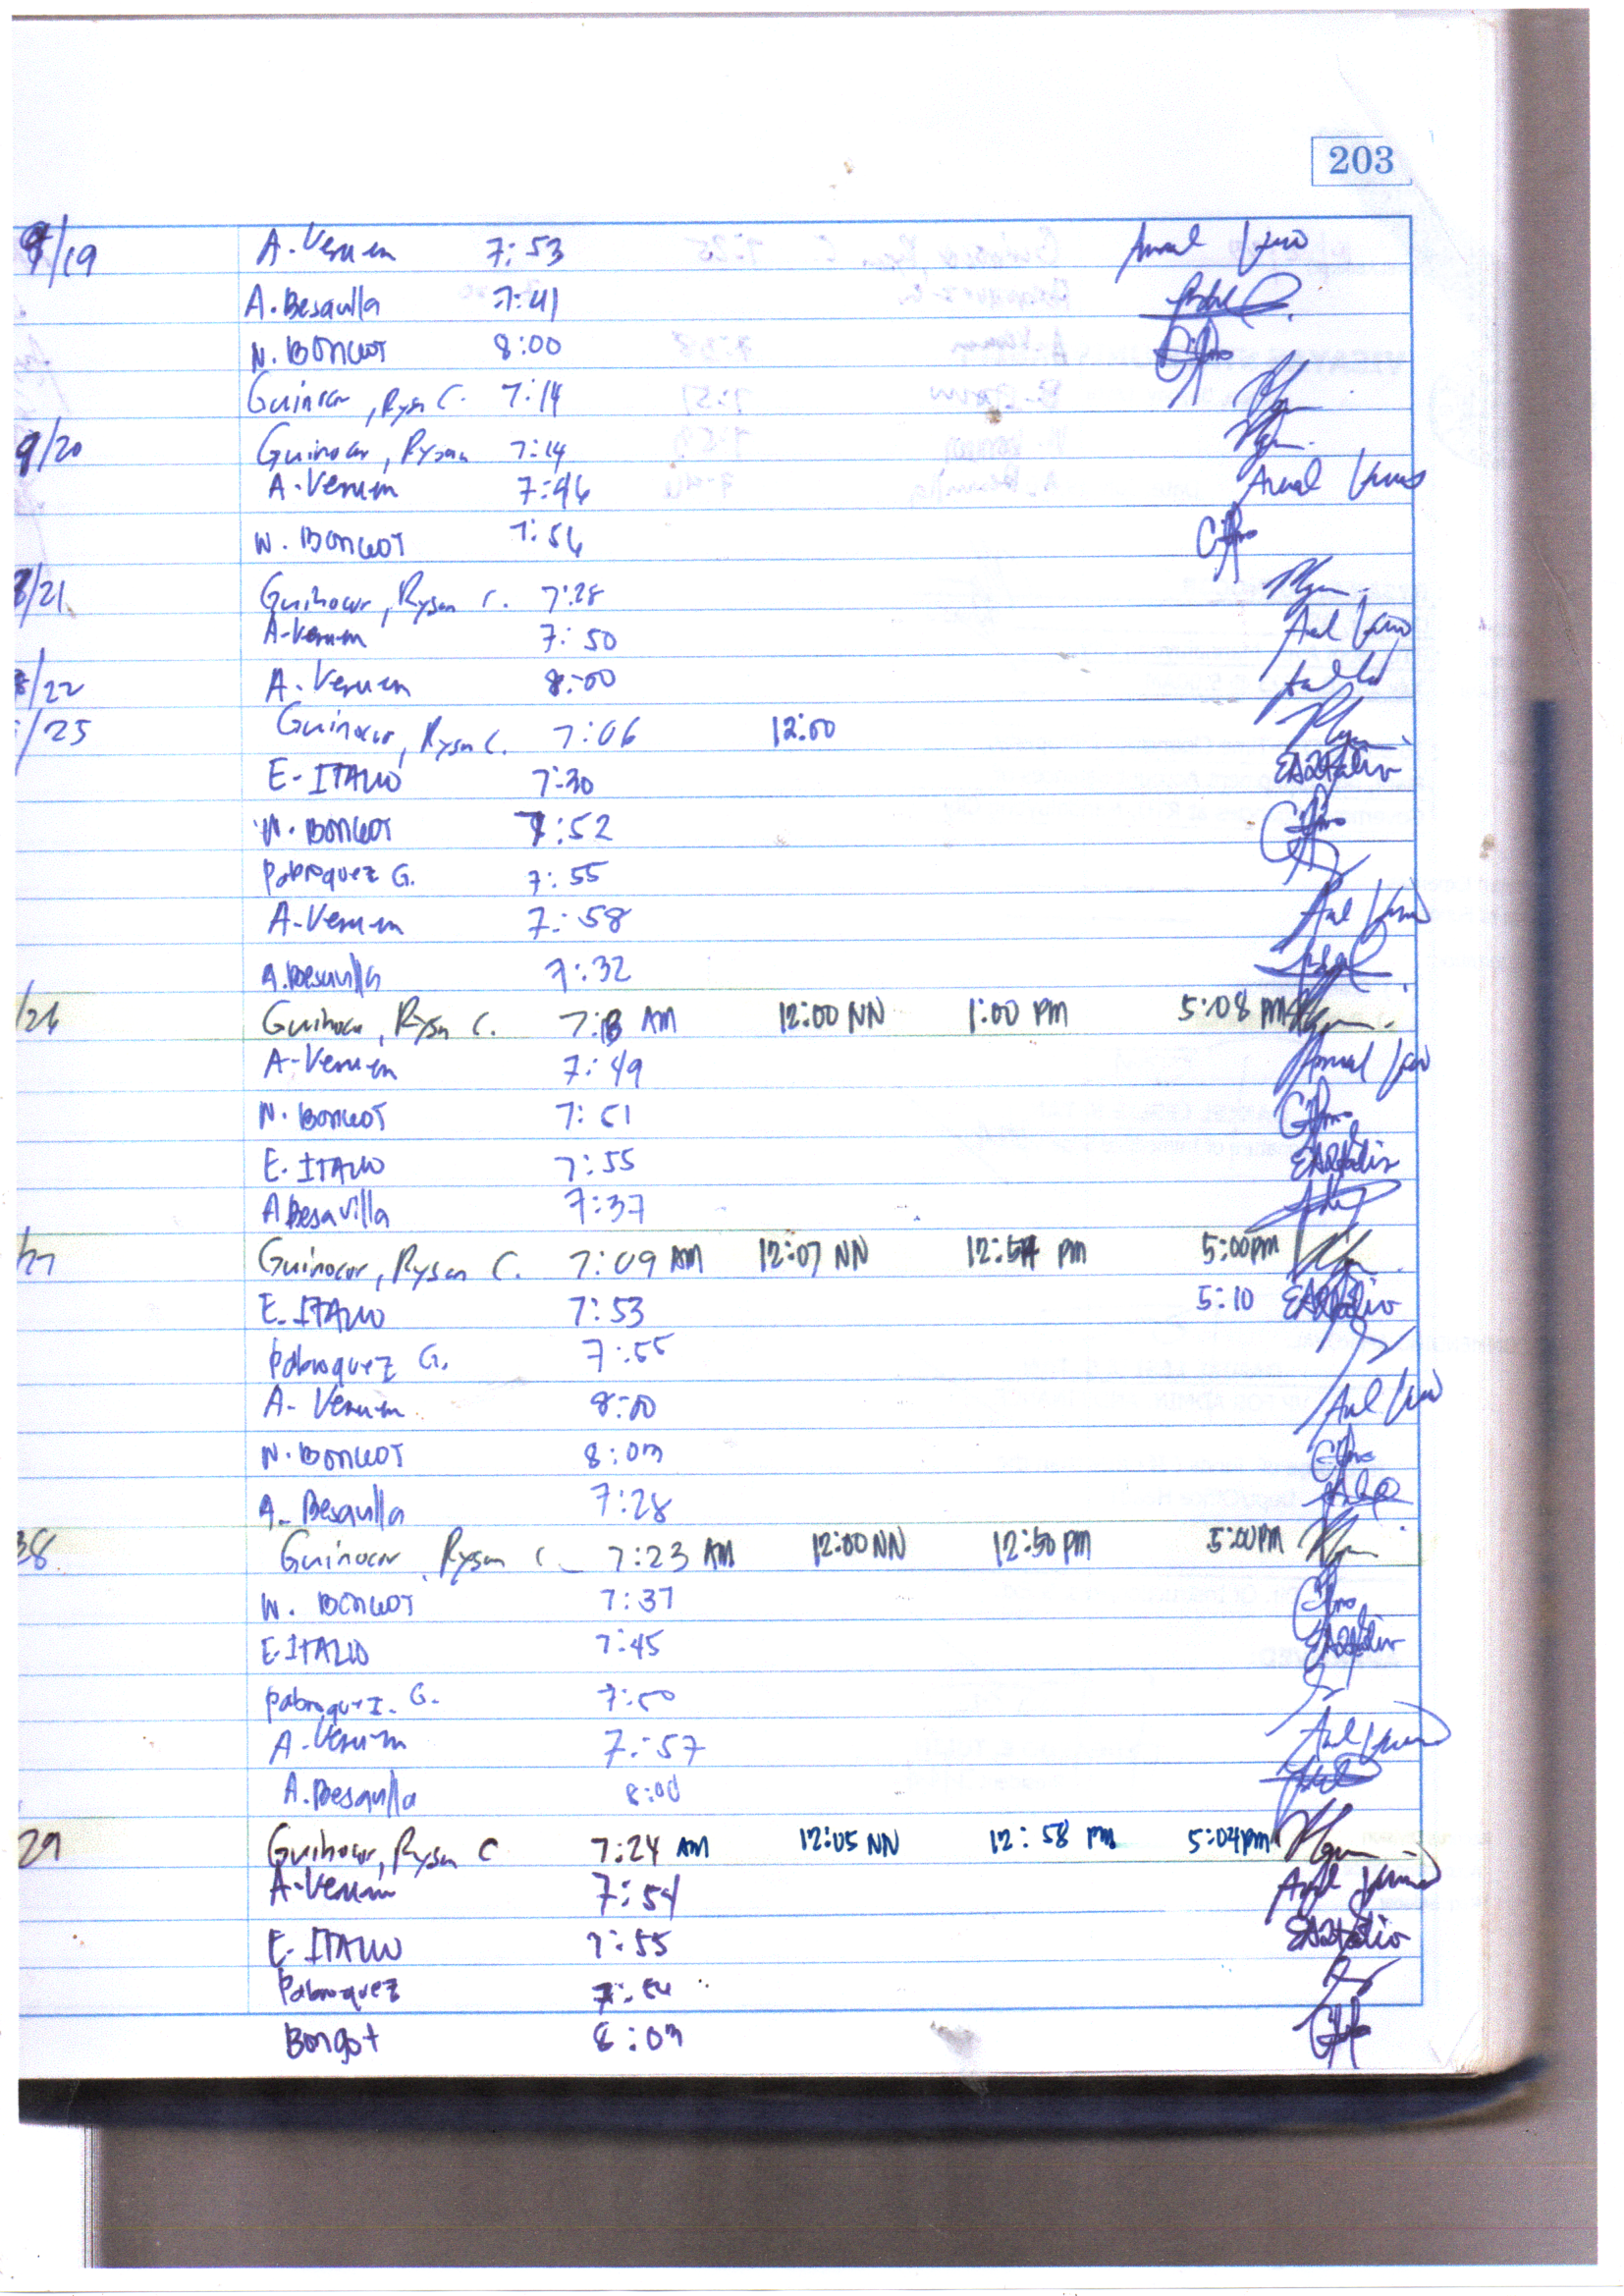 203
9/19 A. Verum 7:53
A. Besavilla 7:41
N. BONGOT 8:00
Guinocor, Rysan C. 7:14
9/20 Guinocor, Rysan 7:14
A. Verum 7:46
N. BONGOT 7:56
/21 Guinocor, Rysan C. 7:28
A. Verum 7:50
/22 A. Verum 8:00
/25 Guinocor, Rysan C. 7:06 12:00
E. ITALIO 7:30
N. BONGOT 7:52
Pabroquez G. 7:55
A. Verum 7:58
A. Besavilla 7:32
/26 Guinocor, Rysan C. AM 12:00 NN 1:00 PM 5:08 PM
A. Verum 7:49
N. BONGOT 7:51
E. ITALIO 7:55
A Besavilla 7:37
/27 Guinocor, Rysan C. 7:09 AM 12:07 NN 12:54 PM 5:00 PM
E. ITALIO 7:53 5:10
Pabroquez G. 7:55
A. Verum 8:00
N. BONGOT 8:03
A. Besavilla 7:28
28 Guinocor, Rysan C. 7:23 AM 12:00 NN 12:50 PM 5:00 PM
N. BONGOT 7:37
E. ITALIO 7:45
Pabroquez. G. 7:50
A. Verum 7:57
A. Besavilla 8:00
29 Guinocor, Rysan C 7:24 AM 12:05 NN 12:58 PM 5:04 PM
A. Verum 7:54
E. ITALIO 7:55
Pabroquez
Bongot 8:03